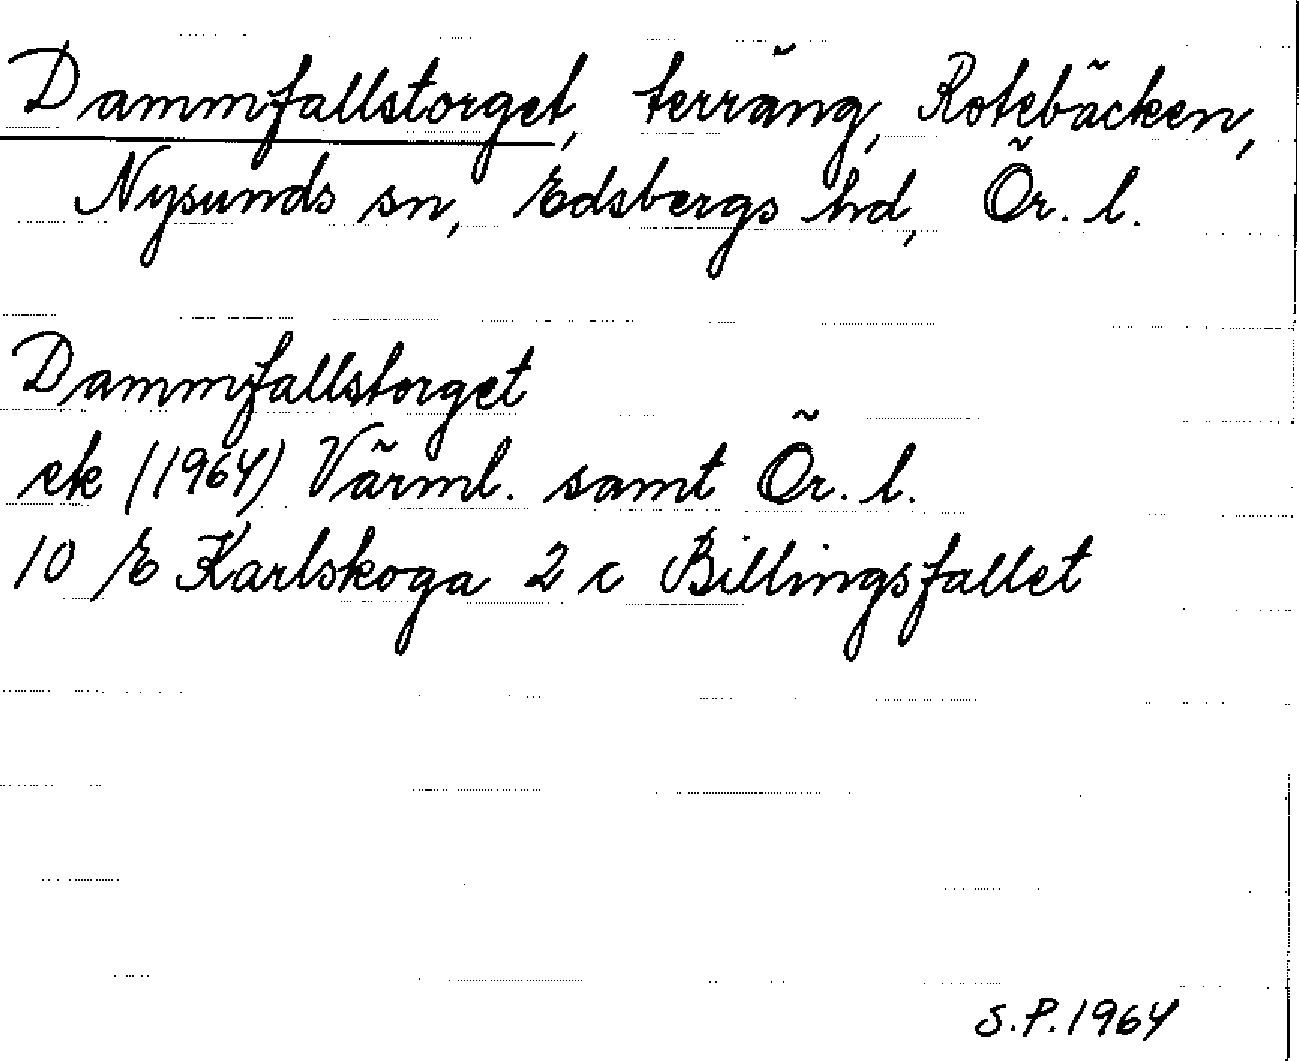 Dammfallstorget, terräng, Rotebäcken,
Nysunds sn, Edsbergs hd, Ör. l.
Dammfallstorget
ek (1964) Värml. samt Ör. l.
10 E Karlskoga 2 c Billingsfallet
S.P. 1964